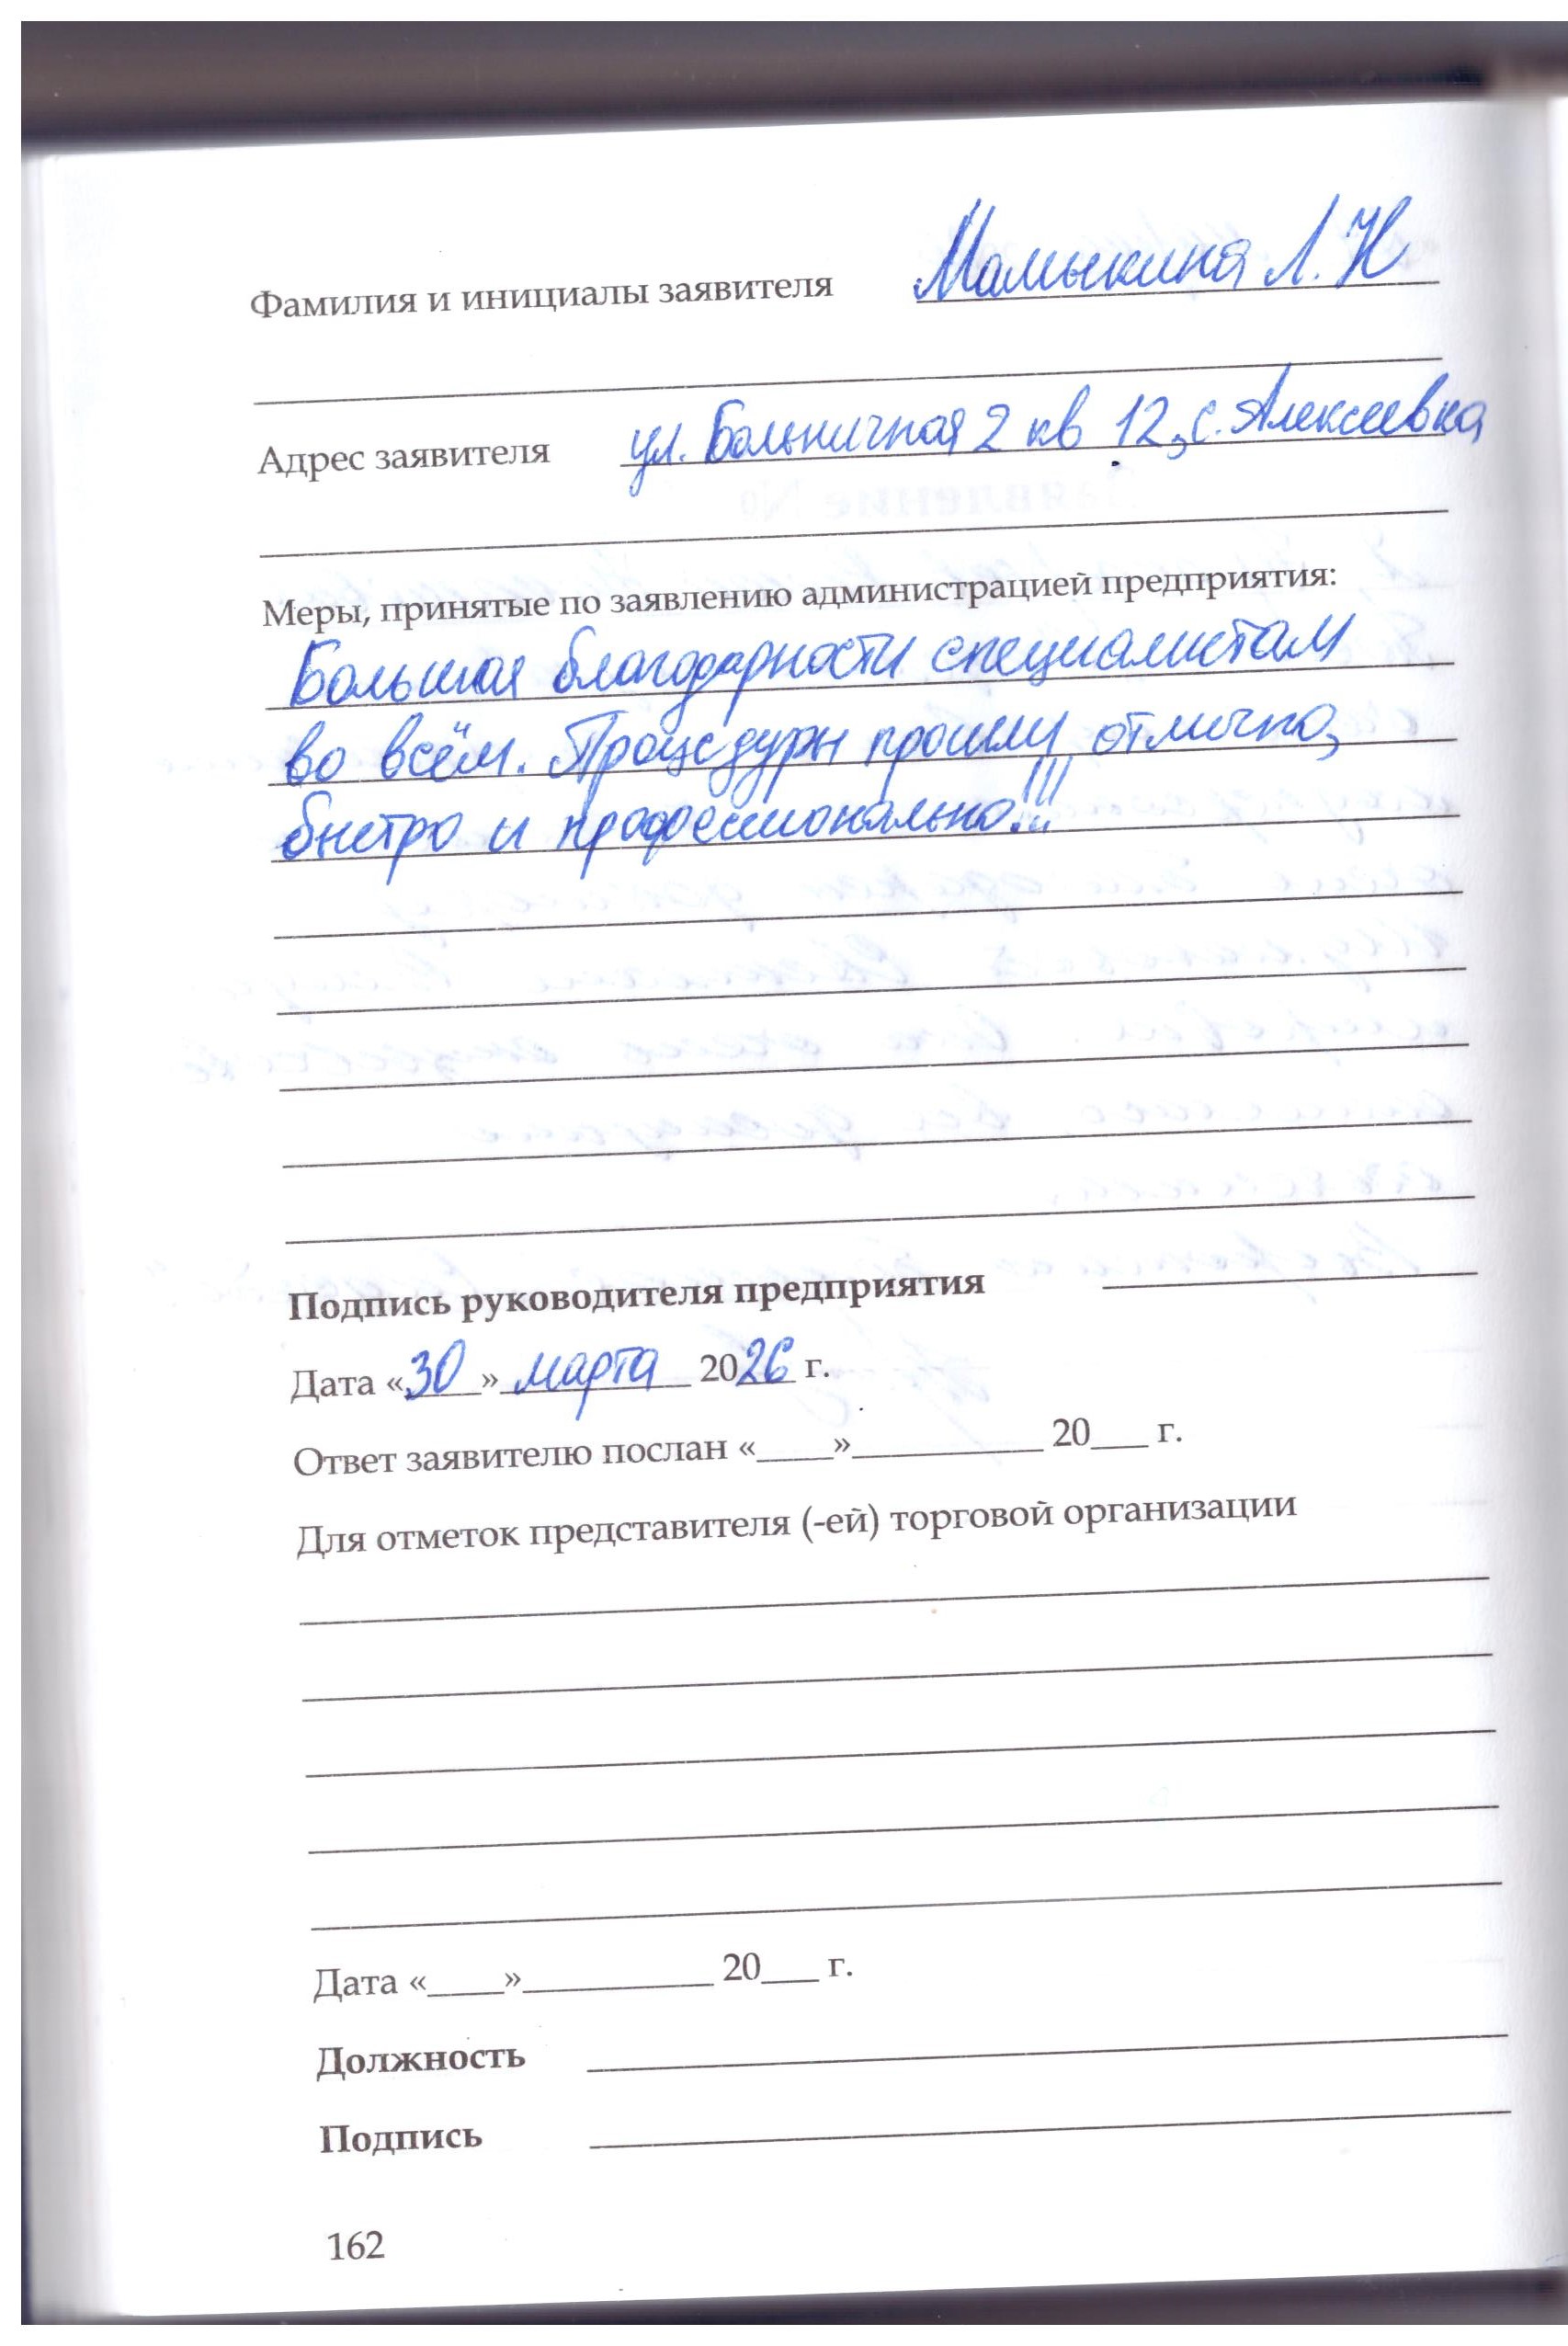 Фамилия и инициалы заявителя Мамыкина Л. Н
Адрес заявителя ул. Больничная 2 кв 12, с. Алексеевка
Меры, принятые по заявлению администрацией предприятия:
Большая благодарности специалистам
во всём. Процедуры прошли отлично,
быстро и профессионально!!!
Подпись руководителя предприятия
Дата «30» марта 2026 г.
Ответ заявителю послан «____»__________ 20___ г.
Для отметок представителя (-ей) торговой организации
Дата «____»__________ 20___ г.
Должность
Подпись
162